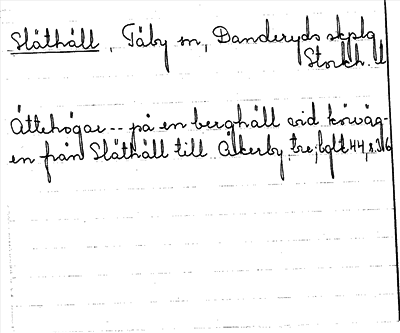 Slåthäll, Täby sn, Danderyds skplg
Stockh. U
Ättehögar -- på en berghäll vid körväg-
en från Slåthäll till Åkerby. tre;